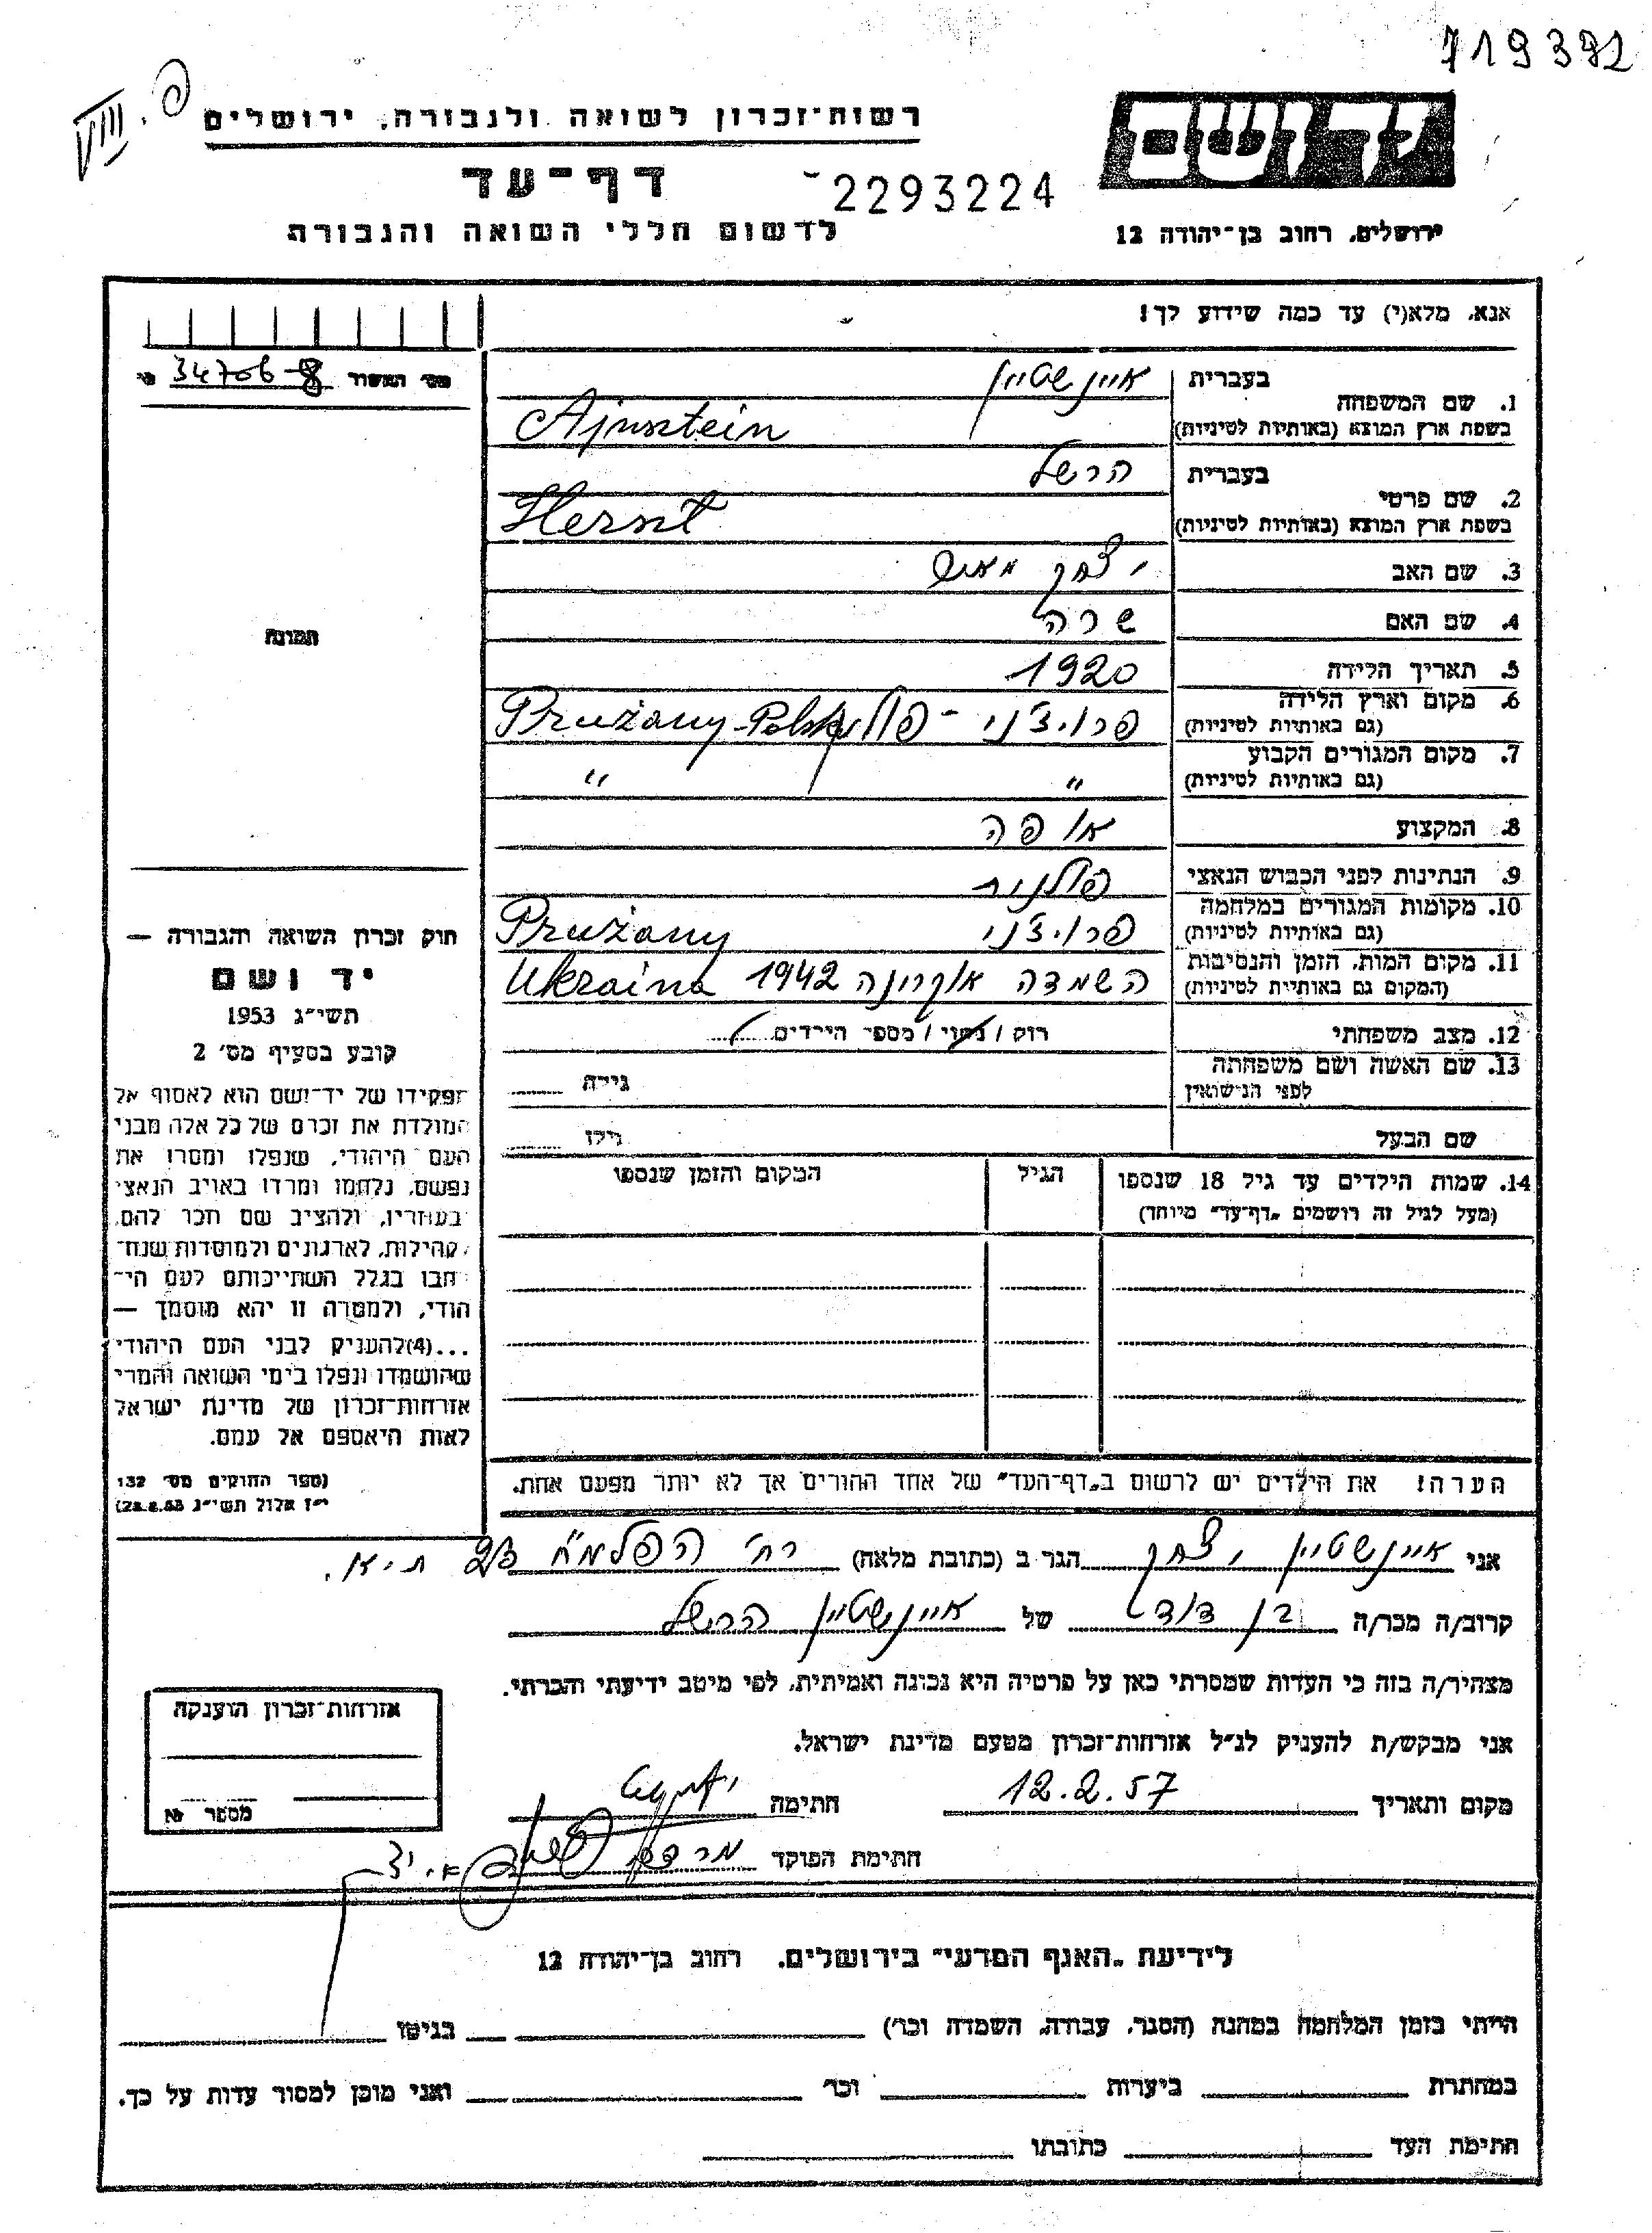 719391
פ. VIII
רשות־זכרון לשואה ולגבורה, ירושלים
יד ושם
דף־עד
2293224
לרשום חללי השואה והגבורה
ירושלים, רחוב בן־יהודה 12
אנא, מלא(י) עד כמה שידוע לך!
מס׳ האשור 34706-8
1. שם המשפחה בעברית איינשטיין
בשפת ארץ המוצא (באותיות לטיניות) Ajnsztein
2. שם פרטי בעברית הרשל
בשפת ארץ המוצא (באותיות לטיניות) Herszt
3. שם האב יצחק
4. שם האם שרה
תמונה
5. תאריך הלידה 1920
6. מקום וארץ הלידה (גם באותיות לטיניות) פרוז׳ני - פולין Prużany-Polska
7. מקום המגורים הקבוע (גם באותיות לטיניות) " "
8. המקצוע אופה
9. הנתינות לפני הכבוש הנאצי פולנית
10. מקומות המגורים במלחמה (גם באותיות לטיניות) פרוז׳ני Prużany
11. מקום המות, הזמן והנסיבות (המקום גם באותיות לטיניות) השמדה אוקרינה 1942 Ukraina
12. מצב משפחתי רוק / נשוי / מספר הילדים
13. שם האשה ושם משפחתה לפני הנישואין גילה
שם הבעל גילו
14. שמות הילדים עד גיל 18 שנספו
(מעל לגיל זה רושמים "דף־עד" מיוחד)
הגיל
המקום והזמן שנספו
חוק זכרון השואה והגבורה —
יד ושם
תשי״ג 1953
קובע בסעיף מס׳ 2
תפקידו של יד־ושם הוא לאסוף אל
המולדת את זכרם של כל אלה מבני
העם היהודי, שנפלו ומסרו את
נפשם, נלחמו ומרדו באויב הנאצי
בעוזריו, ולהציב שם וזכר להם,
קהילות, לארגונים ולמוסדות שנח־
רבו בגלל השתייכותם לעם הי־
הודי, ולמטרה זו יהא מוסמך —
...(4)להעניק לבני העם היהודי
שהושמדו ונפלו בימי השואה והמרי
אזרחות־זכרון של מדינת ישראל
לאות היאספם אל עמם.
(ספר החוקים מס׳ 132
י״ז אלול תשי״ג 28.8.53)
הערה! את הילדים יש לרשום ב"דף־העד" של אחד ההורים אך לא יותר מפעם אחת.
אני איינשטיין יצחק הגר ב (כתובת מלאה) רח׳ הפלמ״ח ת״א.
קרוב/ה מכר/ה בן דוד של איינשטיין הרשל
מצהיר/ה בזה כי העדות שמסרתי כאן על פרטיה היא נכונה ואמיתית, לפי מיטב ידיעתי והכרתי.
אני מבקש/ת להעניק לנ״ל אזרחות־זכרון מטעם מדינת ישראל.
מקום ותאריך 12.2.57 חתימה
חתימת הפוקד
אזרחות־זכרון הוענקה
מספר №
לידיעת "האגף המדעי" בירושלים, רחוב בן־יהודה 12
הייתי בזמן המלחמה במחנה (הסגר, עבודה, השמדה וכו׳) בגיטו
במחתרת ביערות וכו׳ ואני מוכן למסור עדות על כך.
חתימת העד כתובתו